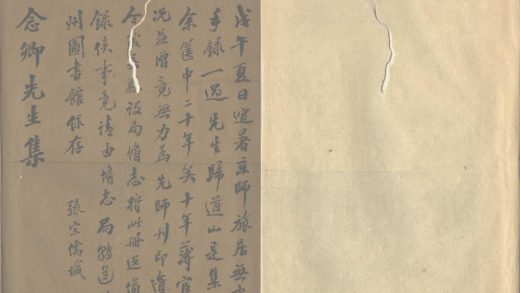 戊午夏日避暑京師旅居無
手錄一過先生歸道山是集
余篋中二十年矣十年薄宦
况益增竟無力為先師刊印遺
今 設局脩志將此冊送
錄俟事竟請由脩志局轉送
州圖書館保存
張宗儒誠
念卿先生集